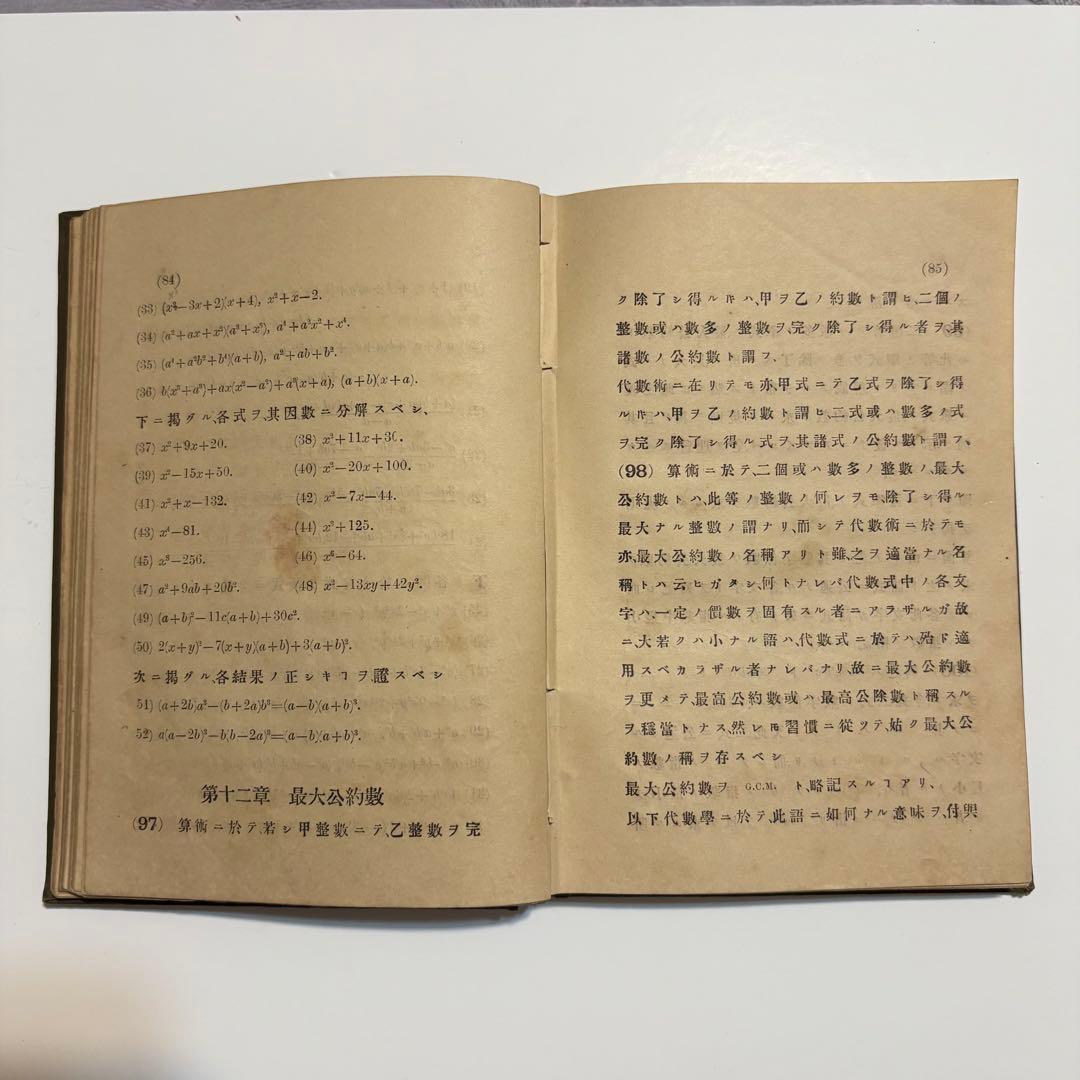 (84)
(33) (x²−3x+2)(x+4), x²+x−2.
(34) (a²+ax+x²)(a³+x³), a⁴+a²x²+x⁴.
(35) (a⁴+a²b²+b⁴)(a+b), a²+ab+b².
(36) b(x³+a³)+ax(x²−a²)+a³(x+a), (a+b)(x+a).
下ニ揭グル、各式ヲ、其因數ニ分解スベシ、
(37) x²+9x+20.
(38) x²+11x+30.
(39) x²−15x+50.
(40) x²−20x+100.
(41) x²+x−132.
(42) x²−7x−44.
(43) x⁴−81.
(44) x³+125.
(45) x⁸−256.
(46) x⁶−64.
(47) a²+9ab+20b².
(48) x²−13xy+42y².
(49) (a+b)²−11c(a+b)+30c².
(50) 2(x+y)²−7(x+y)(a+b)+3(a+b)².
次ニ揭グル、各結果ノ正シキヿヲ、證スベシ
51) (a+2b)a³−(b+2a)b³=(a−b)(a+b)³.
52) a(a−2b)³−b(b−2a)³=(a−b)(a+b)³.
第十二章 最大公約數
(97) 算術ニ於テ、若シ甲整數ニテ、乙整數ヲ完
(85)
ク除了シ得ルキハ、甲ヲ乙ノ約數ト謂ヒ、二個ノ
整數、或ハ數多ノ整數ヲ完ク除了シ得ル者ヲ、其
諸數ノ公約數ト謂フ、
代數術ニ在リテモ亦、甲式ニテ乙式ヲ除了シ得
ルキハ、甲ヲ乙ノ約數ト謂ヒ、二式或ハ數多ノ式
ヲ、完ク除了シ得ル式ヲ、其諸式ノ公約數ト謂フ、
(98) 算術ニ於テ、二個或ハ數多ノ整數ノ、最大
公約數トハ、此等ノ整數ノ何レヲモ、除了シ得ル
最大ナル整數ノ謂ナリ、而シテ代數術ニ於テモ
亦、最大公約數ノ名稱アリト雖、之ヲ適當ナル名
稱トハ云ヒガタシ、何トナレバ代數式中ノ各文
字ハ、一定ノ價數ヲ固有スル者ニアラザルガ故
ニ、大若クハ小ナル語ハ、代數式ニ於テハ、殆ド適
用スベカラザル者ナレバナリ、故ニ最大公約數
ヲ更メテ、最高公約數或ハ最高公除數ト稱スル
ヲ穩當トナス、然レ𪜈習慣ニ從ツテ、姑ク最大公
約數ノ稱ヲ存スベシ
最大公約數ヲ G.C.M. ト、略記スルヿアリ、
以下代數學ニ於テ、此語ニ如何ナル意味ヲ、付與